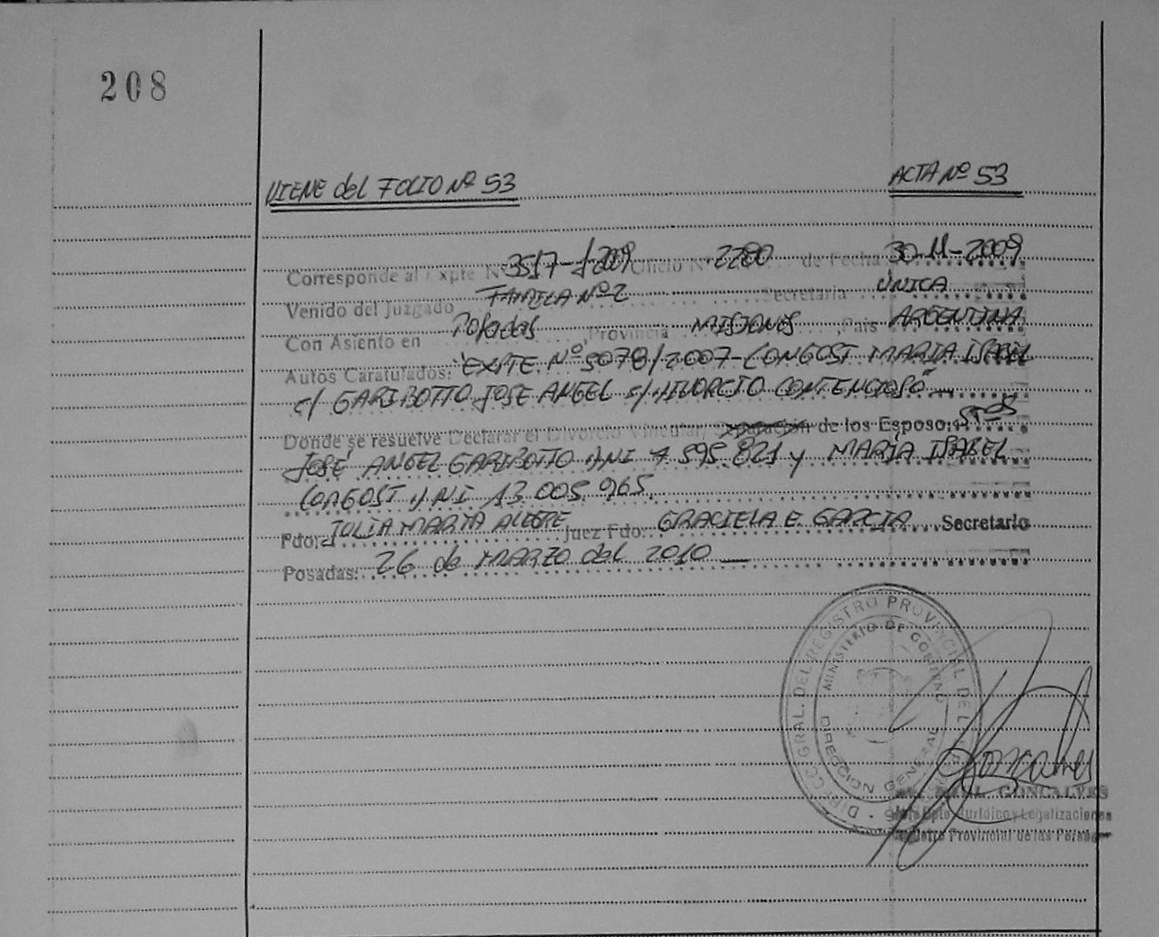 208
VIENE del FOLIO Nº 53
ACTA Nº 53
Corresponde al Expte Nº 3517-J-2009 Oficio Nº 2280 de Fecha 30-11-2009
Venido del Juzgado FAMILIA Nº 2 Secretaria ÚNICA
Con Asiento en Posadas, Provincia MISIONES, Pais ARGENTINA
Autos Caratulados: "EXPTE. Nº 5078/2007-CONGOST MARIA ISABEL
c/ GARIBOTTO JOSE ANGEL s/ DIVORCIO CONTENCIOSO"
Donde se resuelve Declarar el Divorcio Vincular, de los Esposos: Sres
JOSÉ ANGEL GARIBOTTO DNI 595.821 y MARÍA ISABEL
CONGOST DNI 13.005.965.
Fdo: JULIA MARTA ALEGRE Juez Fdo: GRACIELA E. GARCIA Secretario
Posadas: 26 de MARZO del 2010
DIRECC. GRAL. DEL REGISTRO PROVINCIAL DE L
MINISTERIO DE GOBIERNO
DIRECCION GENERAL
GONCALVES
Jefe Dpto. Jurídico y Legalizaciones
Registro Provincial de las Personas